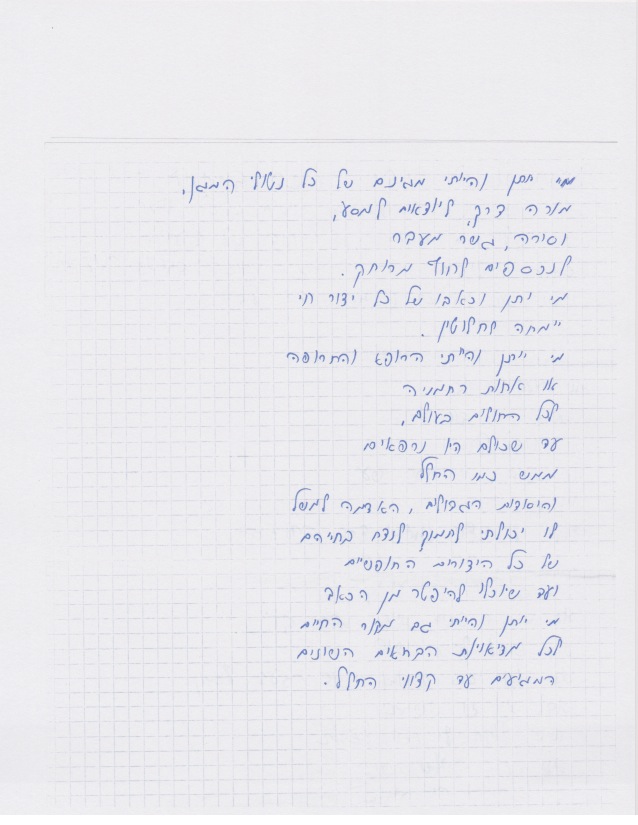 מי יתן והייתי מגינם של כל נטולי המגן,
מורה דרך, ליוצאים למסע,
וסירה, גשר מעבר
לנכספים לחוף מרוחק.
מי יתן וכאבו של כל יצור חי
יימחה לחלוטין.
מי ייתן והייתי הרופא והתרופה
או אחות רחמניה
לכל החולים בעולם,
עד שכולם היו נרפאים
ממש כמו החלל
והיסודות הגדולים, האדמה למשל
לו יכולתי לתמוך לנצח בחייהם
של כל היצורים החופשיים
ועד שיוכלו להיפטר מן הכאב
מי יותן והייתי גם מקור החיים
לכל הברואים השונים
המגיעים עד קצווי החלל.